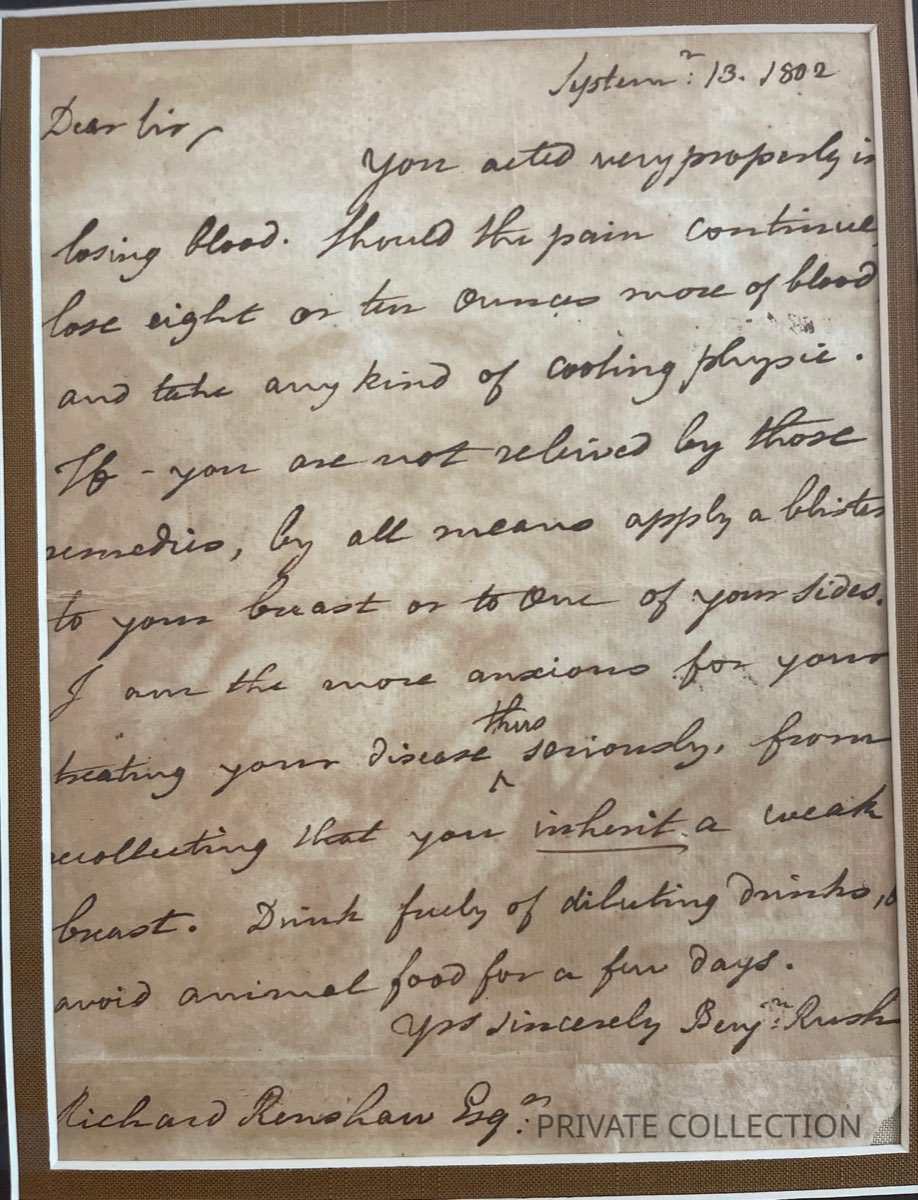 Systemr: 13. 1802
Dear Sir,
You acted very properly in
losing blood. Should the pain continue,
lose eight or ten Ounces more of blood
and take any kind of cooling physic.
If - you are not relieved by those
remedies, by all means apply a blister
to your breast or to One of your sides.
I am the more anxious for your
treating your disease thus seriously, from
recollecting that you inherit a weak
breast. Drink freely of diluting drinks,
avoid animal food for a few days.
Yrs sincerely Benjn: Rush
Richard Renshaw Esqr:
PRIVATE COLLECTION